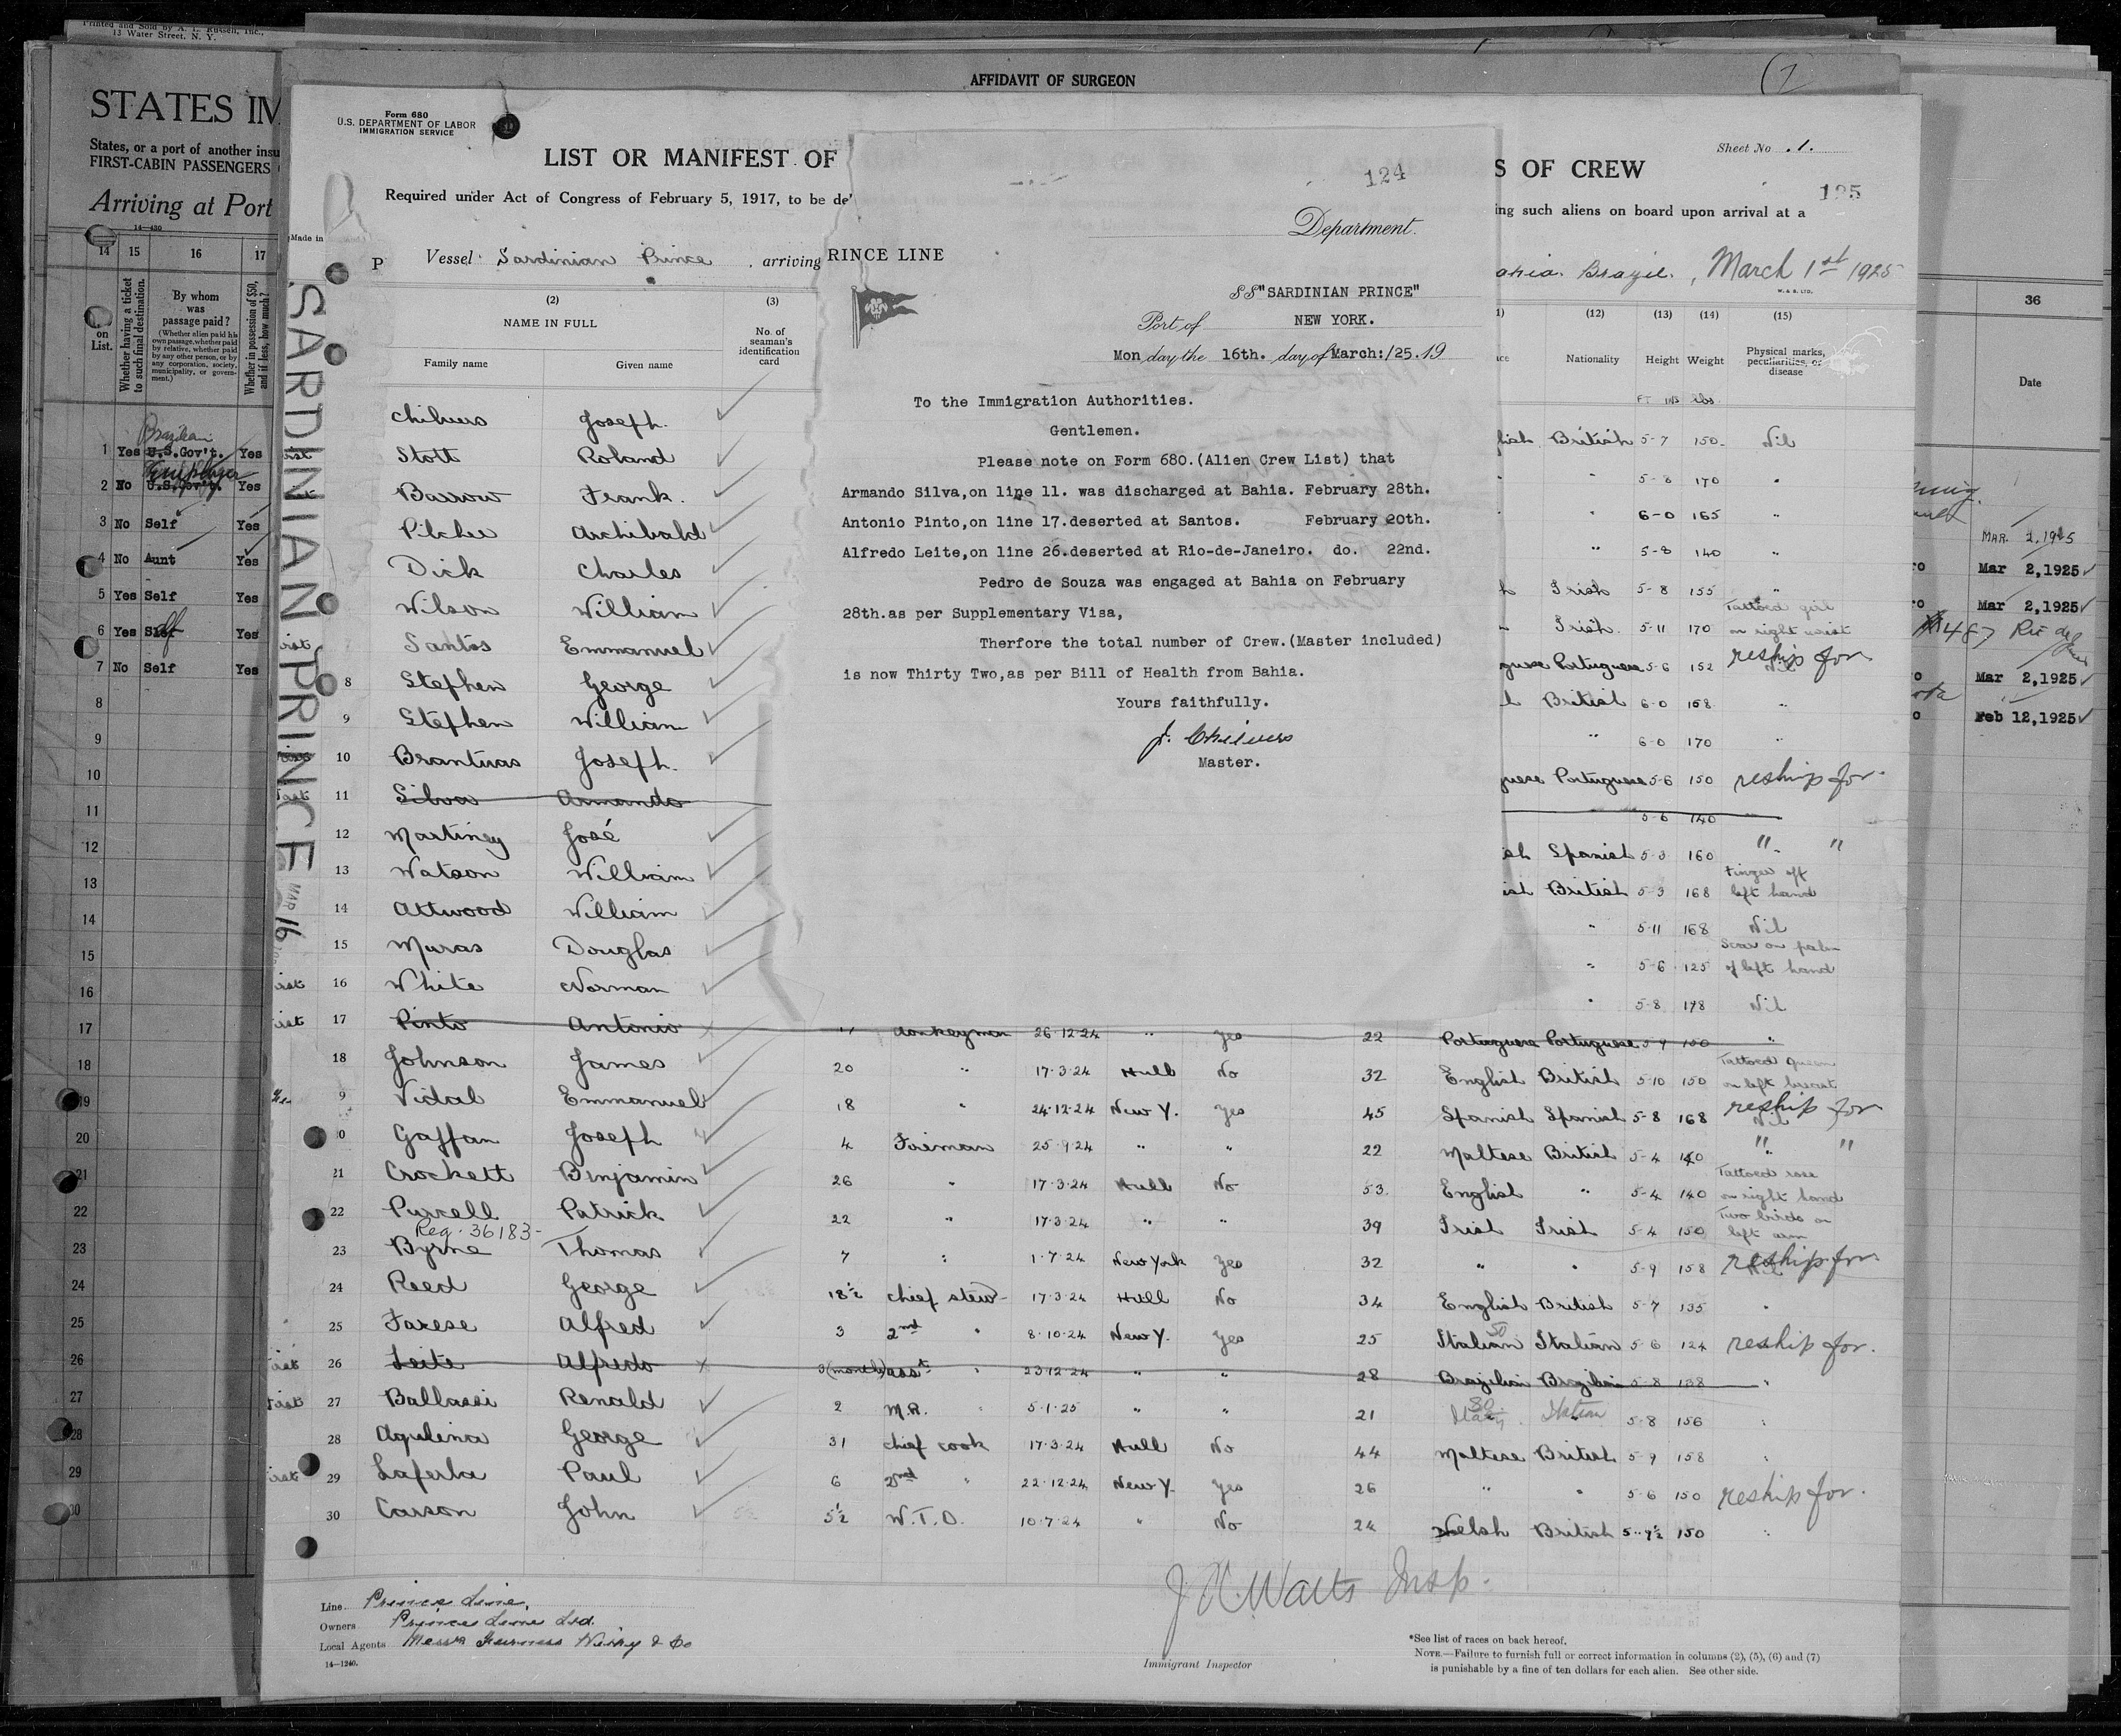 Printed and Sold by A. L. Russell, Inc.,
13 Water Street, N. Y.
AFFIDAVIT OF SURGEON
STATES IM
States, or a port of another insu
FIRST-CABIN PASSENGERS
Arriving at Port
14—430
14 15 16 17
on List.
Whether having a ticket to such final destination.
By whom was passage paid?
(Whether alien paid his own passage, whether paid by relative, whether paid by any other person, or by any corporation, society, municipality, or government.)
Whether in possession of $50, and if less, how much?
Brazilian
1 Yes U.S.Gov't. Yes
Employer
2 No U.S.Gov't. Yes
3 No Self Yes
4 No Aunt Yes
5 Yes Self Yes
6 Yes Self Yes
7 No Self Yes
8
9
10
11
12
13
14
15
16
17
18
19
20
21
22
23
24
25
26
27
28
29
30
Form 680
U.S. DEPARTMENT OF LABOR
IMMIGRATION SERVICE
Sheet No. 1.
LIST OR MANIFEST OF
S OF CREW
125
Required under Act of Congress of February 5, 1917, to be de
ing such aliens on board upon arrival at a
Made in
P
Vessel Sardinian Prince, arriving
ahia Brazil, March 1st 1925
W. & S. LTD.
SARDINIAN PRINCE MAR 16
(2) (3)
NAME IN FULL
No. of seaman's identification card
Family name Given name
(12) (13) (14) (15)
Nationality Height Weight Physical marks, peculiarities, or disease
FT INS lbs
124
Department.
RINCE LINE
SS "SARDINIAN PRINCE"
Port of NEW YORK.
Mon day the 16th. day of March:/25. 19
To the Immigration Authorities.
Gentlemen.
Please note on Form 680.(Alien Crew List) that
Armando Silva,on line 11. was discharged at Bahia. February 28th.
Antonio Pinto,on line 17.deserted at Santos. February 20th.
Alfredo Leite,on line 26.deserted at Rio-de-Janeiro. do. 22nd.
Pedro de Souza was engaged at Bahia on February
28th.as per Supplementary Visa,
Therfore the total number of Crew.(Master included)
is now Thirty Two,as per Bill of Health from Bahia.
Yours faithfully.
J. Chilvers
Master.
Chilvers Joseph. lish British 5-7 150 Nil
Stott Roland " 5-8 170 "
Barrow Frank. " 6-0 165 "
Pilcher Archibald " 5-8 140 "
Dick Charles Irish 5-8 155 "
Wilson William Irish. 5-11 170 Tattoed girl on right wrist
Santos Emmanuel guese Portuguese 5-6 152 Nil reship for
8 Stephen George British 6-0 158 "
9 Stephen William " 6-0 170 "
10 Brantuas Joseph. guese Portuguese 5-6 150 reship for
11 Silva Armando 5-6 140
12 Martinez José ish Spanish 5-3 160 " "
13 Watson William ish British 5-3 168 Finger off left hand
14 Attwood William " 5-11 168 Nil
15 Muras Douglas " 5-6 125 Scar on palm of left hand
16 White Norman " 5-8 178 Nil
17 Pinto Antonio 11 donkeyman 26-12-24 " Yes 22 Portuguese Portuguese 5-9 150 "
18 Johnson James 20 " 17-3-24 Hull No 32 English British 5-10 150 Tattoed Queen on left breast
9 Vidal Emmanuel 18 " 24-12-24 New Y. Yes 45 Spanish Spanish 5-8 168 Nil reship for
0 Gaffan Joseph 4 Fireman 25-9-24 " " 22 Maltese British 5-4 140 " "
21 Crockett Binjamin 26 " 17-3-24 Hull No 53 English " 5-4 140 Tattoed rose on right hand
22 Purcell Patrick 22 " 17-3-24 " " 39 Irish Irish 5-4 150 Two birds on left arm
Reg. 36183-
23 Byrne Thomas 7 " 1-7-24 New York Yes 32 " " 5-9 158 reship for
24 Reed George 18½ chief stew 17-3-24 Hull No 34 English British 5-7 135 "
25 Farese Alfred 3 2nd " 8-10-24 New Y. Yes 25 Italian Italian 5-6 124 reship for.
26 Leite Alfredo 3(months) asst " 23-12-24 " " 28 Brazilian Brazilian 5-8 138 "
27 Ballassi Renald 2 M.R. " 5-1-25 " " 21 Italian 5-8 156 "
28 Aquilina George 31 chief cook 17-3-24 Hull No 44 Maltese British 5-9 158 "
29 Laferla Paul 6 2nd " 22-12-24 New Y. Yes 26 " " 5-6 150 reship for.
30 Carson John 5½ W.T.O. 10-7-24 " No 24 Welsh British 5-9½ 150 "
J H Watts Insp.
Immigrant Inspector
Line Prince Line,
Owners Prince Line Ltd.
Local Agents Messrs Furness Withy & Co
14—1240.
*See list of races on back hereof.
NOTE.—Failure to furnish full or correct information in columns (2), (5), (6) and (7)
is punishable by a fine of ten dollars for each alien. See other side.
36
Date
MAR. 2, 1925
Mar 2,1925
Mar 2,1925
487 Rio de
Mar 2,1925
Feb 12,1925